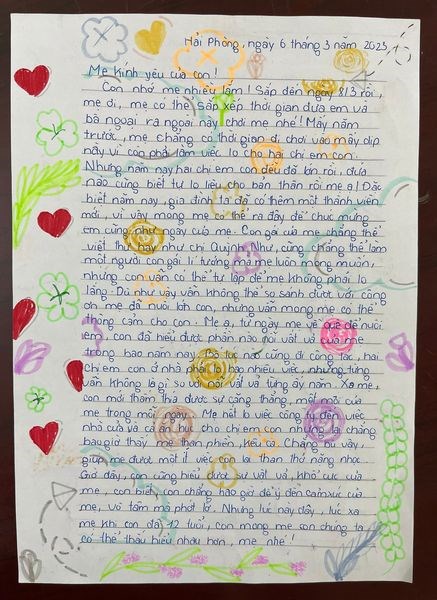 Hải Phòng, ngày 6 tháng 3 năm 2025
Mẹ kính yêu của con!
Con nhớ mẹ nhiều lắm! Sắp đến ngày 8/3 rồi,
mẹ ơi, mẹ có thể sắp xếp thời gian đưa em và
bà ngoại ra ngoài này chơi mẹ nhé! Mấy năm
trước, mẹ chẳng có thời gian đi chơi vào mấy dịp
này vì còn phải làm việc lo cho hai chị em con.
Nhưng năm nay hai chị em con đều đã lớn rồi, đứa
nào cũng biết tự lo liệu cho bản thân rồi mẹ ạ! Đặc
biệt năm nay, gia đình ta đã có thêm một thành viên
mới, vì vậy mong mẹ có thể ra đây để chúc mừng
em cũng như ngày của mẹ. Con gái của mẹ chẳng thể
viết thư hay như chị Quỳnh Như, cũng không thể làm
một người con gái lí tưởng mà mẹ luôn mong muốn,
nhưng con vẫn có thể tự lập để mẹ không phải lo
lắng. Dù như vậy vẫn không thể so sánh được với công
ơn mẹ đã nuôi lớn con, nhưng vẫn mong mẹ có thể
thông cảm cho con. Mẹ ạ, từ ngày mẹ về quê để nuôi
em, con đã hiểu được phần nào nỗi vất vả của mẹ
trong bao năm nay. Bố lúc nào cũng đi công tác, hai
chị em con ở nhà phải lo bao nhiêu việc, nhưng từng
vẫn không là gì so với nỗi vất vả từng ấy năm. Xa mẹ,
con mới thấm thía được sự căng thẳng, mệt mỏi của
mẹ trong mỗi ngày. Mẹ hết lo việc công lại đến việc
nhà cửa và cả ăn học cho chị em con nhưng lại chẳng
bao giờ thấy mẹ than phiền, kêu ca. Chẳng bù vậy,
giúp mẹ được một ít việc con lại than thở nặng nhọc.
Giờ đây, con cũng hiểu được sự vất vả, khổ cực của
mẹ, con biết, con chẳng bao giờ để ý đến cảm xúc của
mẹ, vô tâm mà phớt lờ. Nhưng lúc này đây, lúc xa
mẹ khi con đã 12 tuổi, con mong mẹ con chúng ta
có thể thấu hiểu nhau hơn, mẹ nhé!